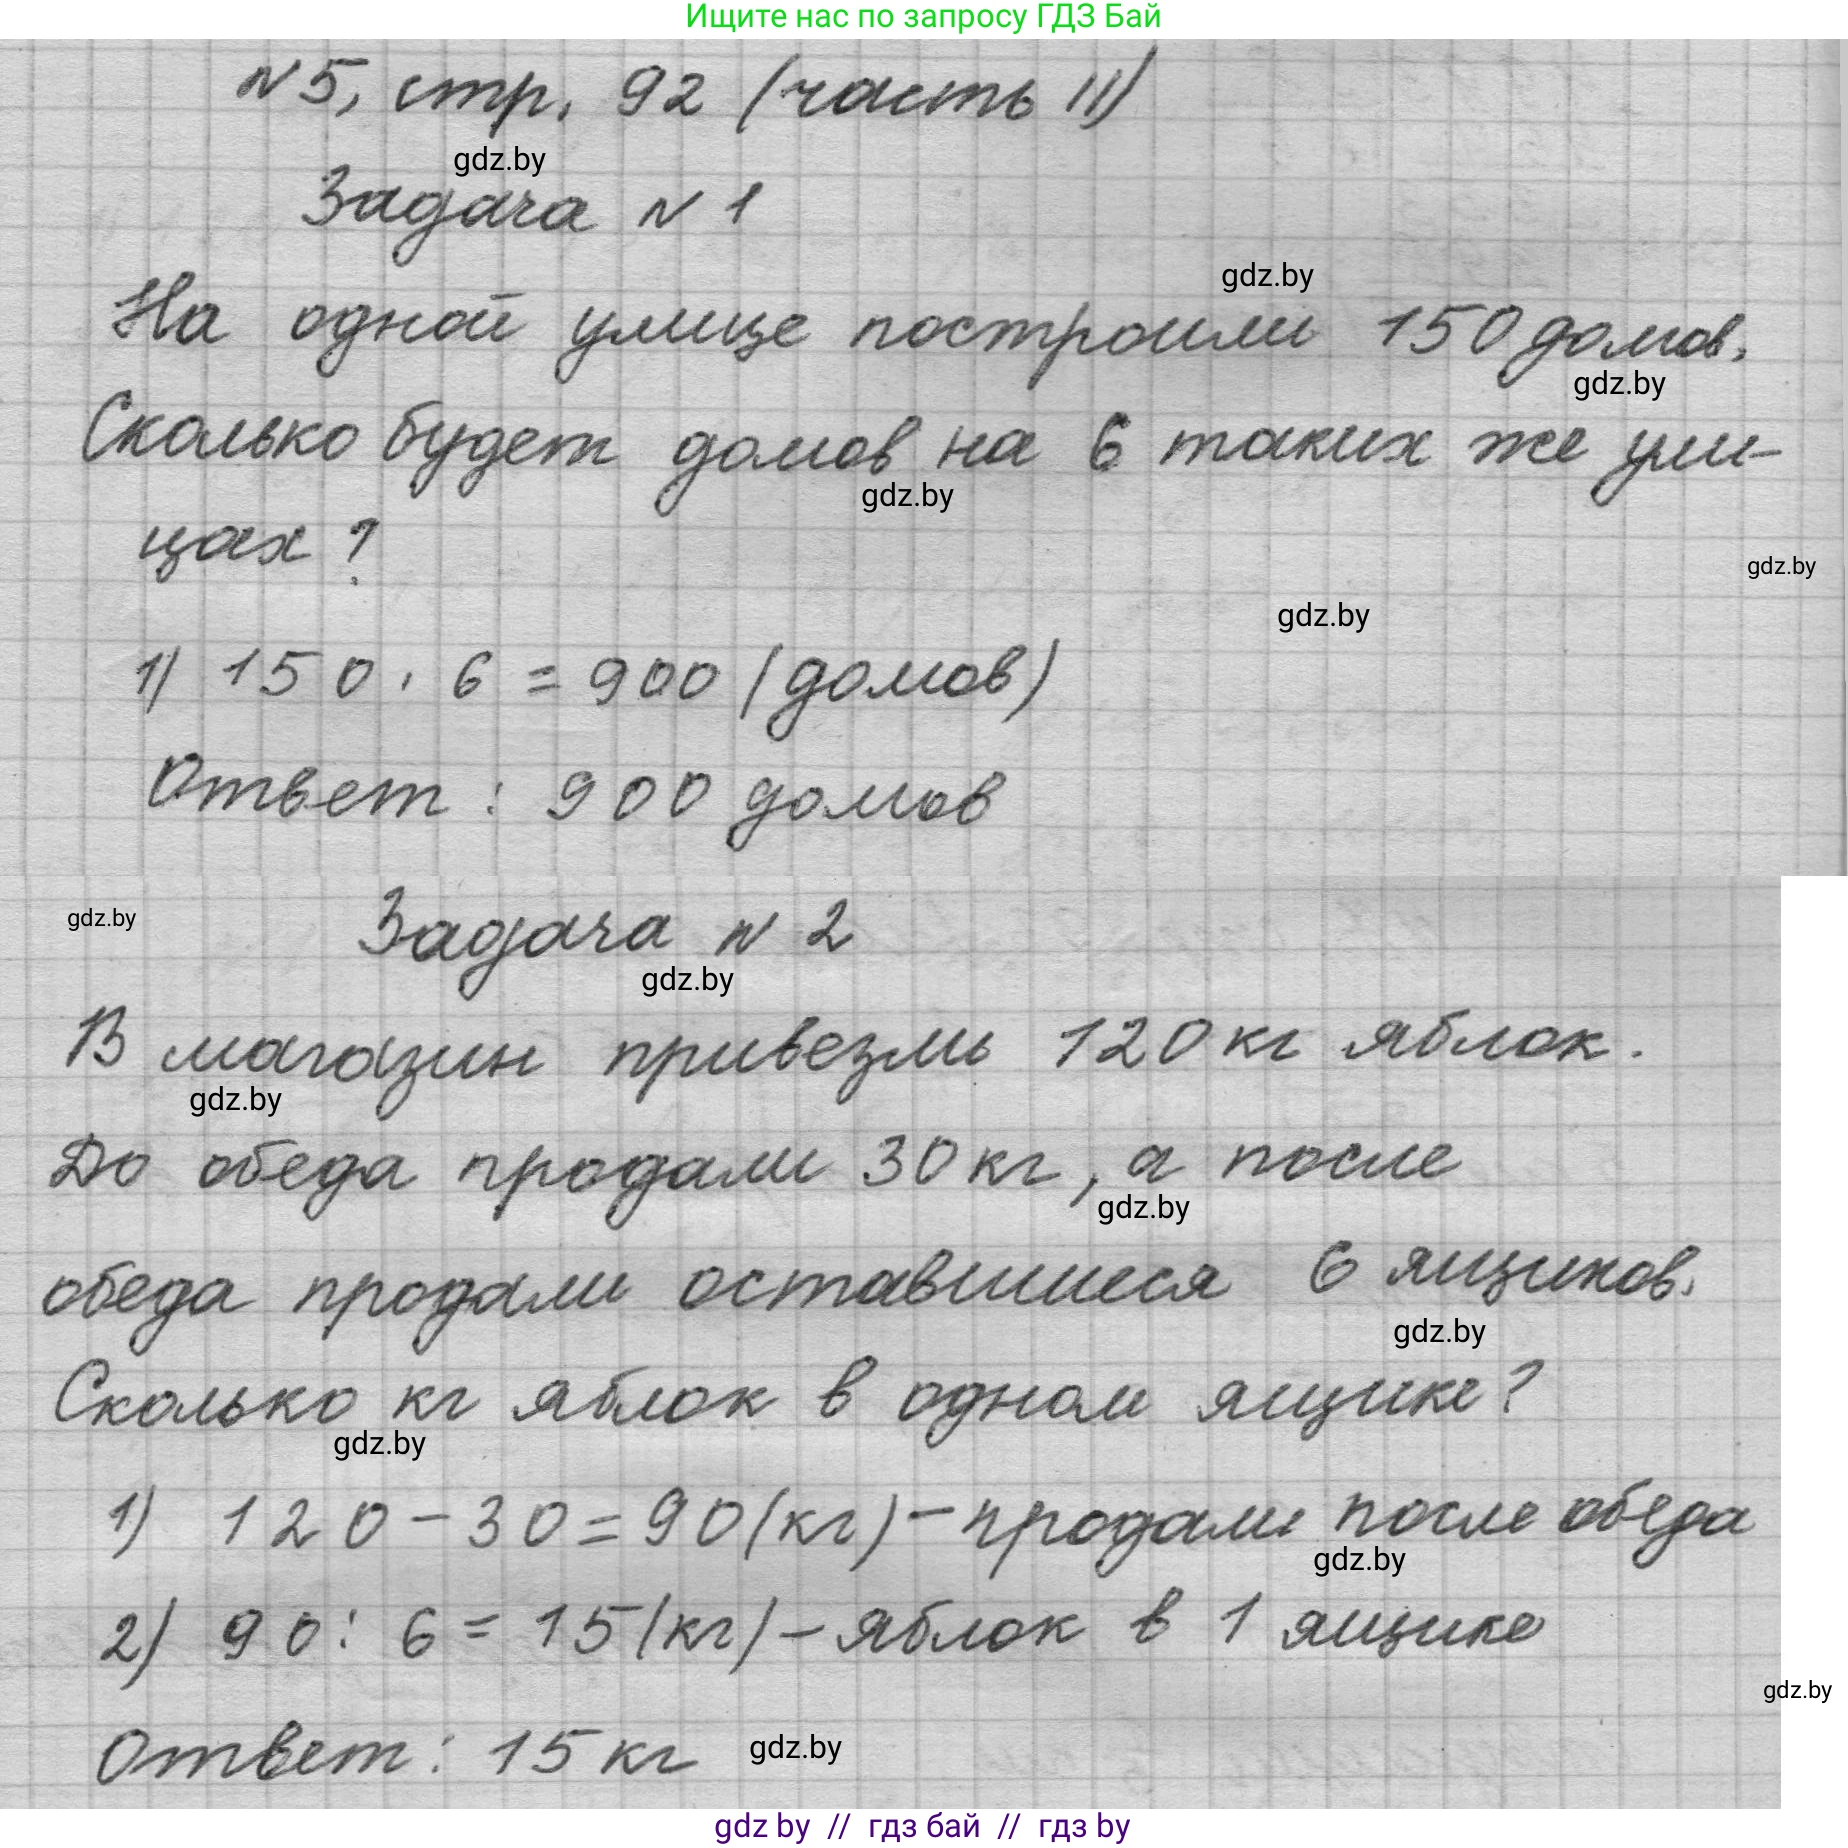 Ищите нас по запросу ГДЗ Бай
N5, стр. 92 (часть II)
gdz.by
Задача N 1
gdz.by
На одной улице построили 150 домов.
gdz.by
Сколько будет домов на 6 таких же ули-
gdz.by
цах?
gdz.by
gdz.by
1) 150 · 6 = 900 (домов)
Ответ: 900 домов
gdz.by
Задача N 2
gdz.by
В магазин привезли 120 кг яблок.
gdz.by
До обеда продали 30 кг, а после
gdz.by
обеда продали оставшиеся 6 ящиков.
gdz.by
Сколько кг яблок в одном ящике?
gdz.by
1) 120 - 30 = 90 (кг) - продали после обеда
gdz.by
2) 90 : 6 = 15 (кг) - яблок в 1 ящике
gdz.by
Ответ: 15 кг
gdz.by
gdz by // гдз бай // гдз by